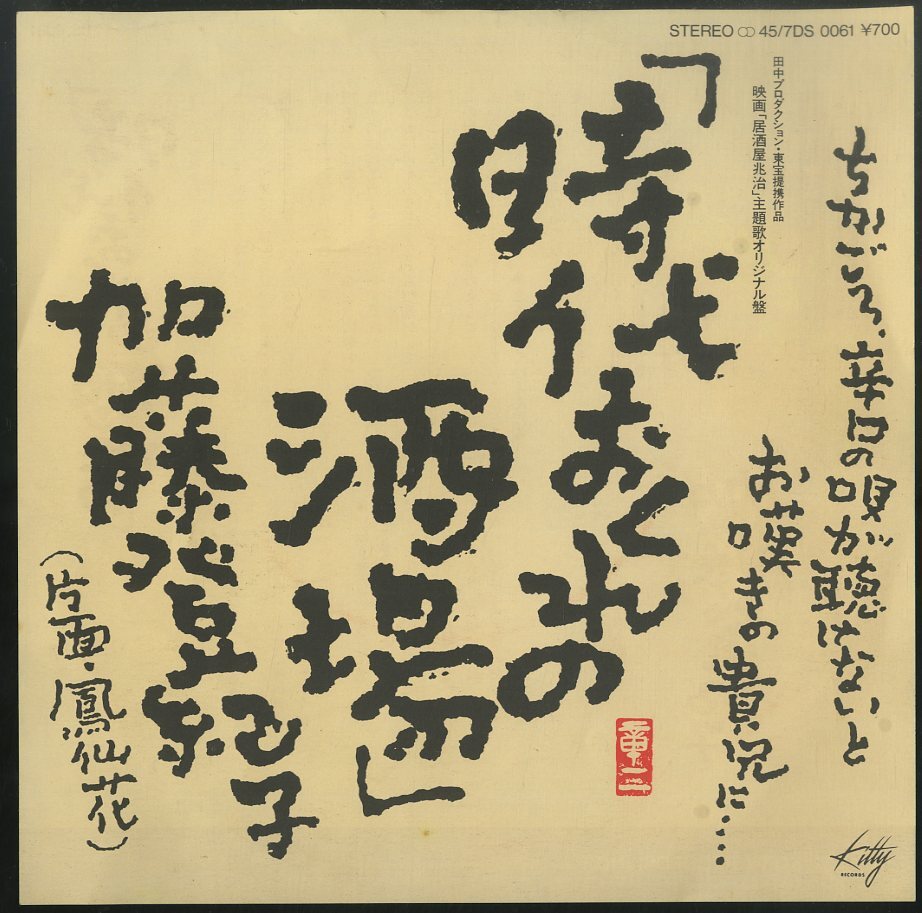 STEREO ㏄ 45/7DS 0061 ¥700
ちかごろ、辛口の唄が聴けないと
お嘆きの貴兄に……
田中プロダクション・東宝提携作品
映画「居酒屋兆治」主題歌オリジナル盤
「時代おくれの
酒場」
加藤登紀子
(片面・鳳仙花)
章二
Kitty
RECORDS